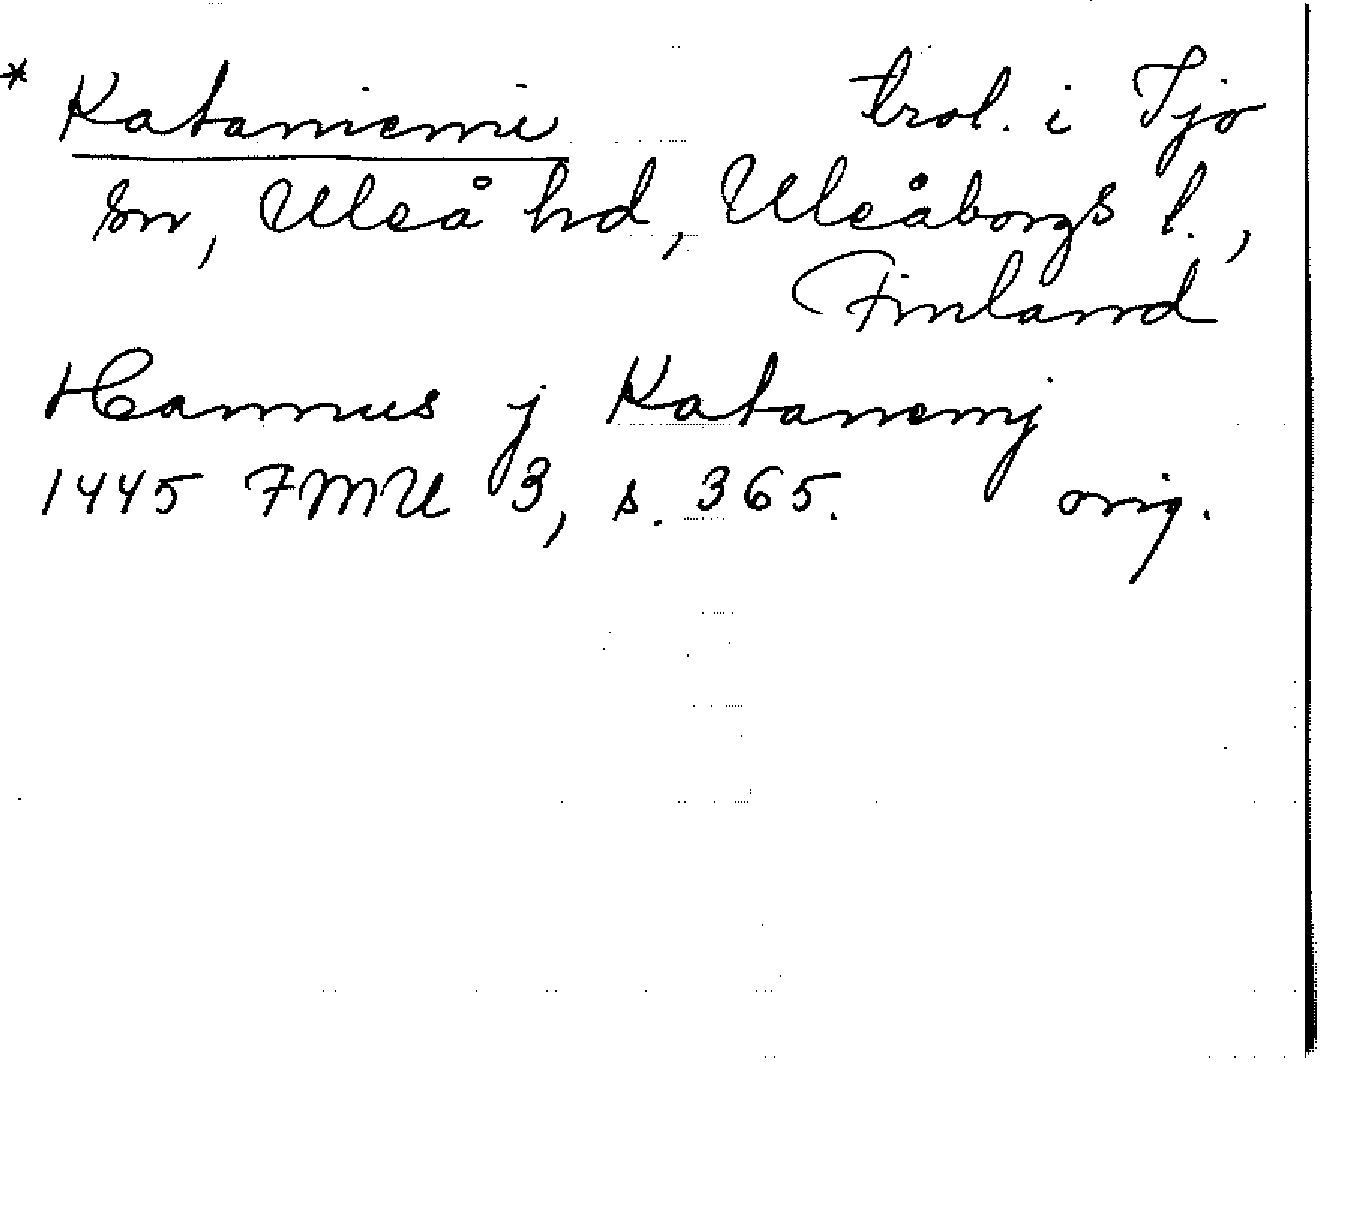 * Kataniemi trol. i Tjo
sn, Uleå hd, Uleåborgs l.,
Finland
Hannus j Katanemj
1445 FMU 3, s. 365. orig.